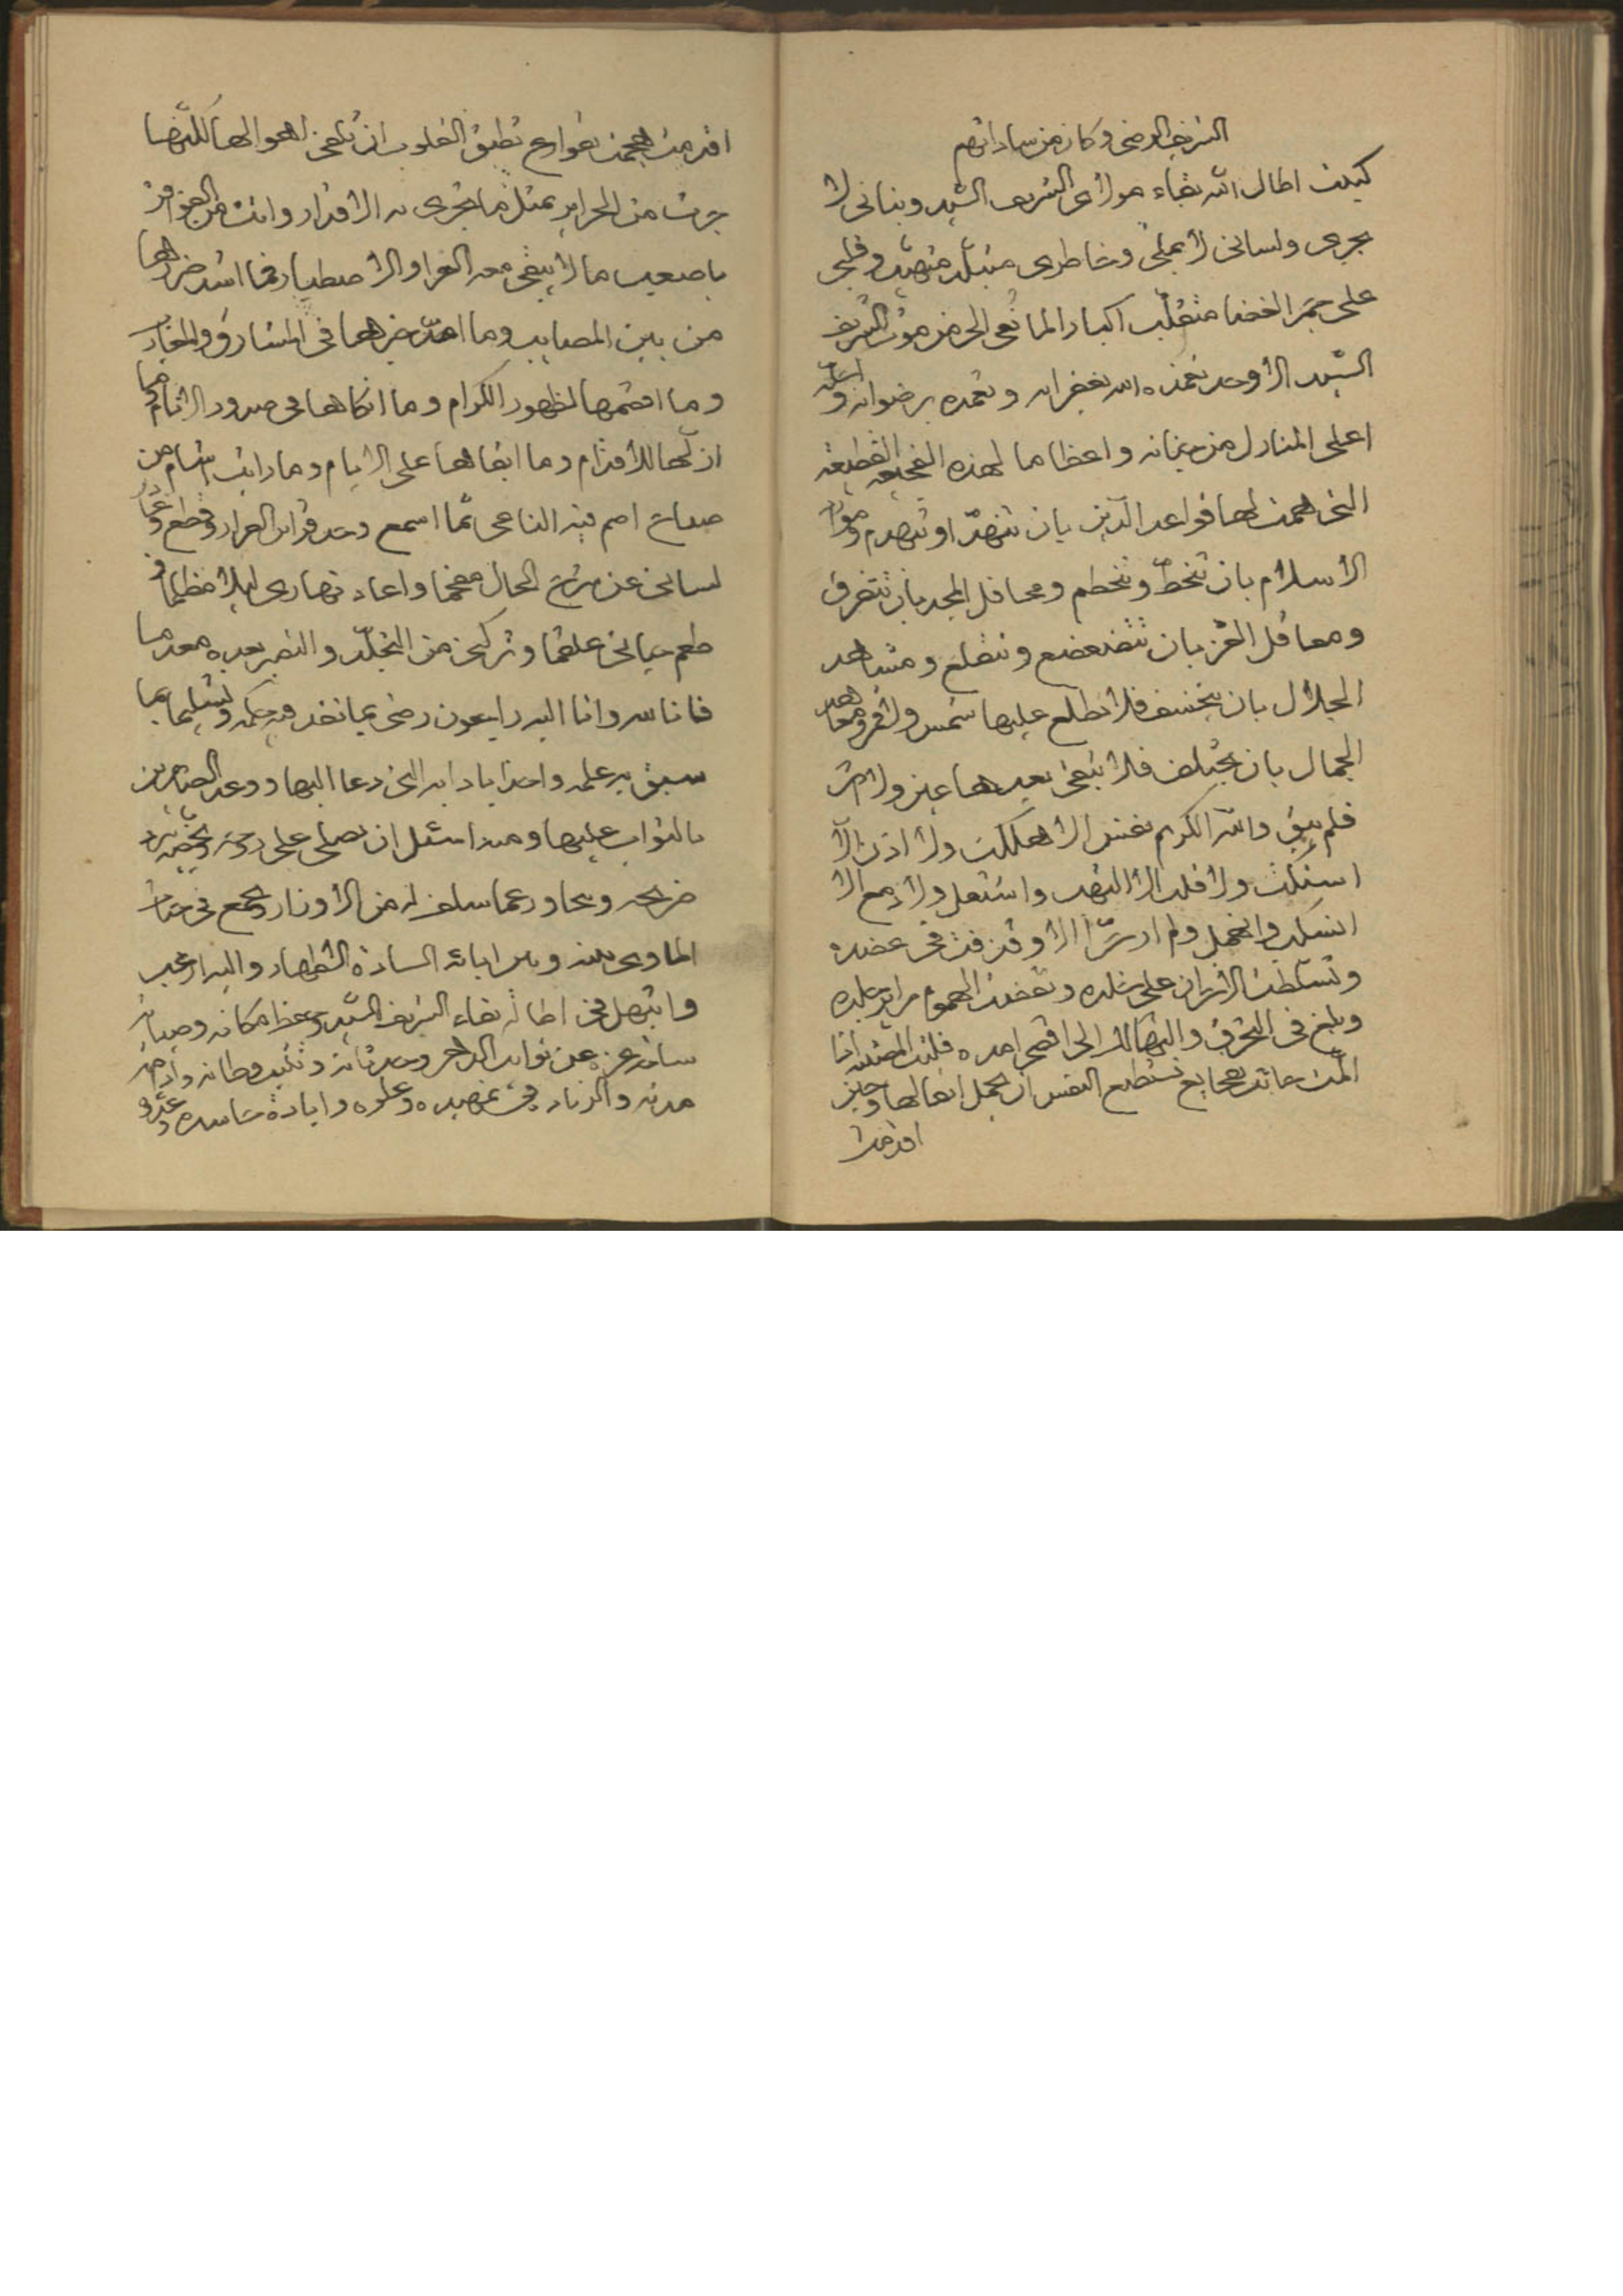 الشريف الرضى وكان من ساداتهم
كتبت اطال الله بقاء مولاى الشريف السيد وبنانى لا
يجرى ولسانى لا يملى وخاطرى متبلّد متهيّب وقلبى
على جمر الغضا متقلّب اكبارا لما نعى الى من موت الشريف
السيد الاوحد تغمده الله بغفرانه وتغمده برضوانه واسكنه
اعلى المنازل من جنانه واعظاما لهذه الفجيعة الفظيعة
التى همت لها قواعد الدين بان تنهدّ او تنهدم ومواد
الاسلام بان تنحطّ وتنحطم ومحافل المجد بان تتفرق
ومعاقل العز بان تتضعضع وتتقلع ومشاهد
الجلال بان ينخسف فلا تطلع عليها شمس ولا قمر ومعاهد
الجمال بان يختلف فلا تبقى بعدها عين ولا اثر
فلم يبق والله الكريم نفس الا هلكت ولا اذن الّا
استكّت ولا قلب الا التهب واشتعل ولا دمع الا
انسكب وانهمل ولم ار شرّا الا وقد فتّ فى عضده
وتسلّطت الاحزان على خلده وتقضت الهموم مراير جلده
وبلغ فى التحرق والتهالك الى اقصى امده فلئن المصيبة اذا
المّت جائت بفجايع تستطيع النفس ان تحمل اثقالها وحين
اقدمت
اقدمت هجمت بقوارع تطيق القلوب ان تلقى اهوالها لكنّها
جرت من الجراير بمثل ما تجرى به الاقدار واتت من الفواقر
باصعب ما لا يبقى معه العزا والاصطبار فما اشد ضرّاها
من بين المصايب وما احدّ خبرها فى المشارق والمغارب
وما اقصمها لظهور الكرام وما انكاها فى صدور الانام وما
ازلّها للاقدام وما ابقاها على الايام وما رايت
صماخ اصم فيه الناعى لمّا اسمع وجد قراين القرار وقطع وغادر
لسانى عن شرح الحال مفحما واعاد نهارى ليلا مظلما و
طعم حياتى علقما وتركنى من التجلّد والتصبر بعده معدما
فانا لله وانا اليه راجعون رضى بما نفذ فيه حكمه وتسليما بما
سبق به علمه واخذا بادابه التى دعا اليها ووعد الصابرين
بالثواب عليها ومنه اسئل ان يصلى على روحه ويخصه ببرد
ضريحه ويجاوز عما سلف له من الاوزار ويجمع فى جنات
الماوى بينه وبين ابائه السادة الاطهار واليه ارغب
وابتهل فى اطالة بقاء الشريف السيد وحفظ مكانه وصيانة
ساحة عزه عن نوايب الدهر وحدثانه وتشييد وطانه وادامة
مدته والزيادة فى تمهيده وعلوه وابادة حاسده وعدوه